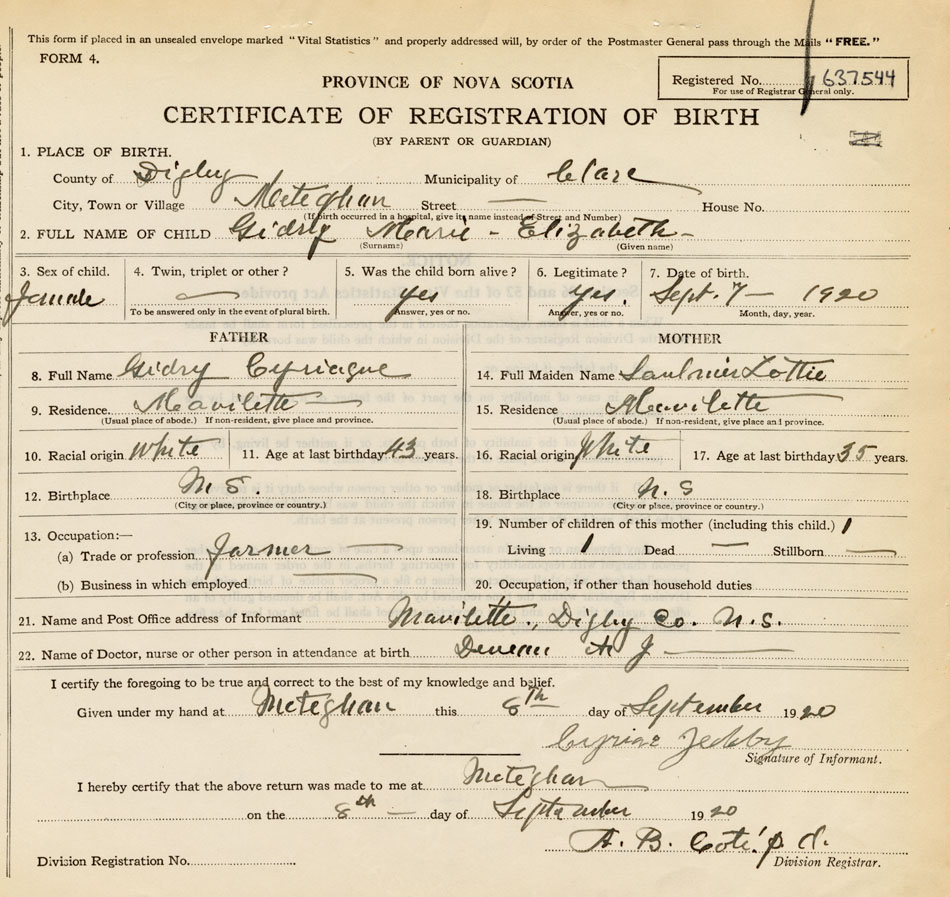 This form if placed in an unsealed envelope marked "Vital Statistics" and properly addressed will, by order of the Postmaster General pass through the Mails "FREE."
FORM 4.
Registered No. 637544
For use of Registrar General only.
PROVINCE OF NOVA SCOTIA
CERTIFICATE OF REGISTRATION OF BIRTH
(BY PARENT OR GUARDIAN)
1. PLACE OF BIRTH.
County of Digby Municipality of Clare
City, Town or Village Meteghan Street — House No.
(If birth occurred in a hospital, give its name instead of Street and Number)
2. FULL NAME OF CHILD Gidry Marie - Elizabeth -
(Surname) (Given name)
3. Sex of child. 4. Twin, triplet or other? 5. Was the child born alive? 6. Legitimate? 7. Date of birth.
Female — yes yes. Sept. 7 — 1920
To be answered only in the event of plural birth. Answer, yes or no. Answer, yes or no. Month, day, year.
FATHER MOTHER
8. Full Name Gidry Cyriaque 14. Full Maiden Name Saulnier Lottie
9. Residence. Mavilette — 15. Residence Mavilette
(Usual place of abode.) If non-resident, give place and province. (Usual place of abode.) If non-resident, give place and province.
10. Racial origin White 11. Age at last birthday 43 years. 16. Racial origin White 17. Age at last birthday 35 years.
12. Birthplace N. S. 18. Birthplace N. S
(City or place, province or country.) (City or place, province or country.)
13. Occupation:— 19. Number of children of this mother (including this child.) 1
(a) Trade or profession Farmer — Living 1 Dead — Stillborn —
(b) Business in which employed — 20. Occupation, if other than household duties
21. Name and Post Office address of Informant Mavilette., Digby Co. N.S.
22. Name of Doctor, nurse or other person in attendance at birth Deveau A J —
I certify the foregoing to be true and correct to the best of my knowledge and belief.
Given under my hand at Meteghan this 8th day of September 1920
Signature of Informant.
I hereby certify that the above return was made to me at Meteghan
on the 8th — day of September 1920
A. B. Coté
Division Registration No. Division Registrar.